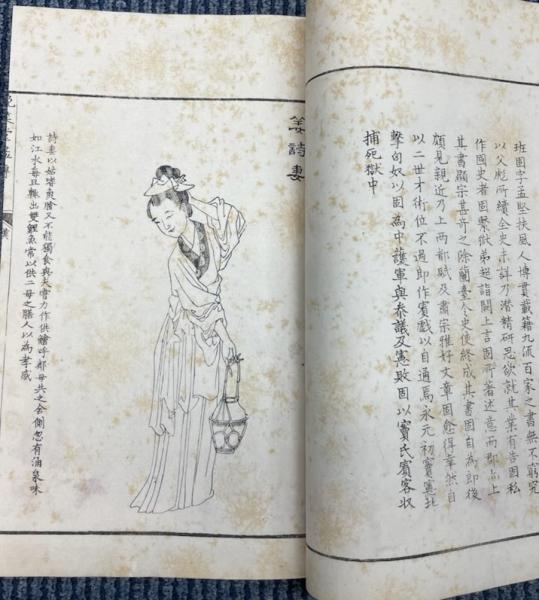 班固字孟堅扶風人博貫載籍九流百家之書無不窮究
以父彪所續全史未詳乃潛精研思欲就其業有告固私
作國史者固繫獄弟超詣闕上言固所著述意而郡亦上
其書顯宗甚奇之除蘭臺令史使終成其書固自為郎後
頗見親近乃上兩都賦及肅宗雅好文章固愈得幸然自
以二世才術位不過郎作賓戲以自通焉永元初竇憲北
擊匈奴以固為中護軍與參議及憲敗固以竇氏賓客收
捕死獄中
姜詩妻
詩妻以姑嗜魚膾又不能獨食與夫嘗力作供膾呼鄰母共之舍側忽有涌泉味
如江水每旦輒出雙鯉魚常以供二母之膳人以為孝感